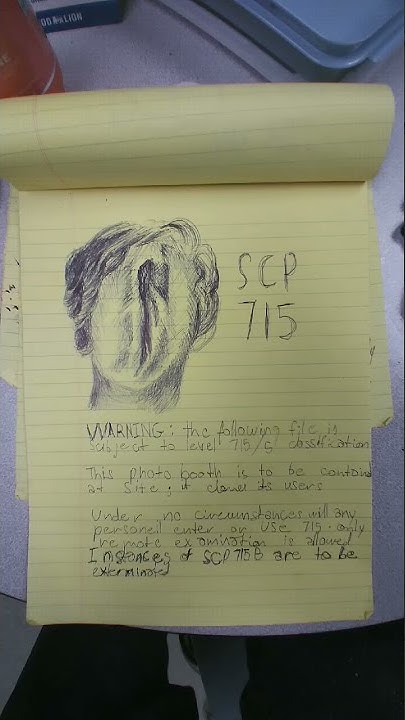 DOG & LION
SCP
715
WARNING: the following file is
subject to level 715/5 classification
This photo booth is to be contained
at Site; it clones its users
Under no circumstances will any
personell enter or use 715. only
remote examination is allowed
Instances of SCP 715 B are to be
exterminated